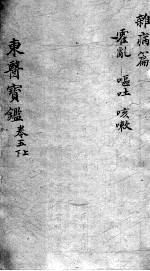 雜病篇
霍亂 嘔吐 咳嗽
東醫寶鑑 卷五上下